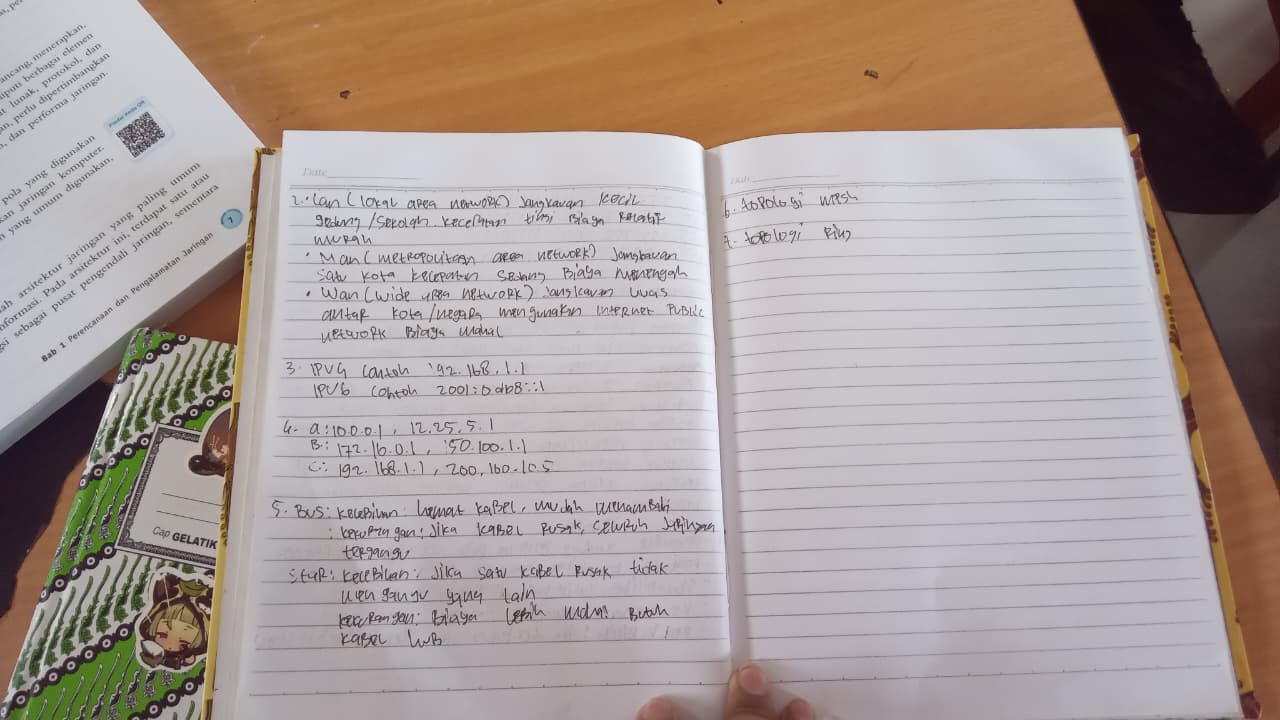 ancang, menerapkan,
iputi berbagai elemen
at lunak, protokol, dan
an, perlu dipertimbangkan
, dan performa jaringan.
pola yang digunakan
kan jaringan komputer.
n yang umum digunakan.
lah arsitektur jaringan yang paling umum
nformasi. Pada arsitektur ini, terdapat satu atau
gsi sebagai pusat pengendali jaringan, sementara
Bab 1 Perencanaan dan Pengalamatan Jaringan
1
Cap GELATIK
Date
2. Lan (lokal area network) Jangkauan kecil
gedung/sekolah kecepatan tinsi Biaya Relatif
murah
• Man (metropolitagn area network) Jangkauan
satu kota kecepatan sedang Biaya menengah
• Wan (wide area network) Jangkauan luas
antar kota/negara mengunakan internet Public
network Biaya mahal
3. IPV4 contoh 192.168.1.1
IPV6 contoh 2001:0db8::1
4. a: 10.0.0.1, 12.25.5.1
B: 172.16.0.1, 150.100.1.1
C: 192.168.1.1, 200.160.10.5
5. Bus: kelebihan: hemat kabel, mudah menambah
: kekurangan: Jika kabel rusak, seluruh
tergangu
Star: kelebihan: Jika satu kabel rusak tidak
mengangu yang lain
kekurangan: Biaya lebih mahal Butuh
kabel
Date
6. topologi mesh
7. topologi Ring